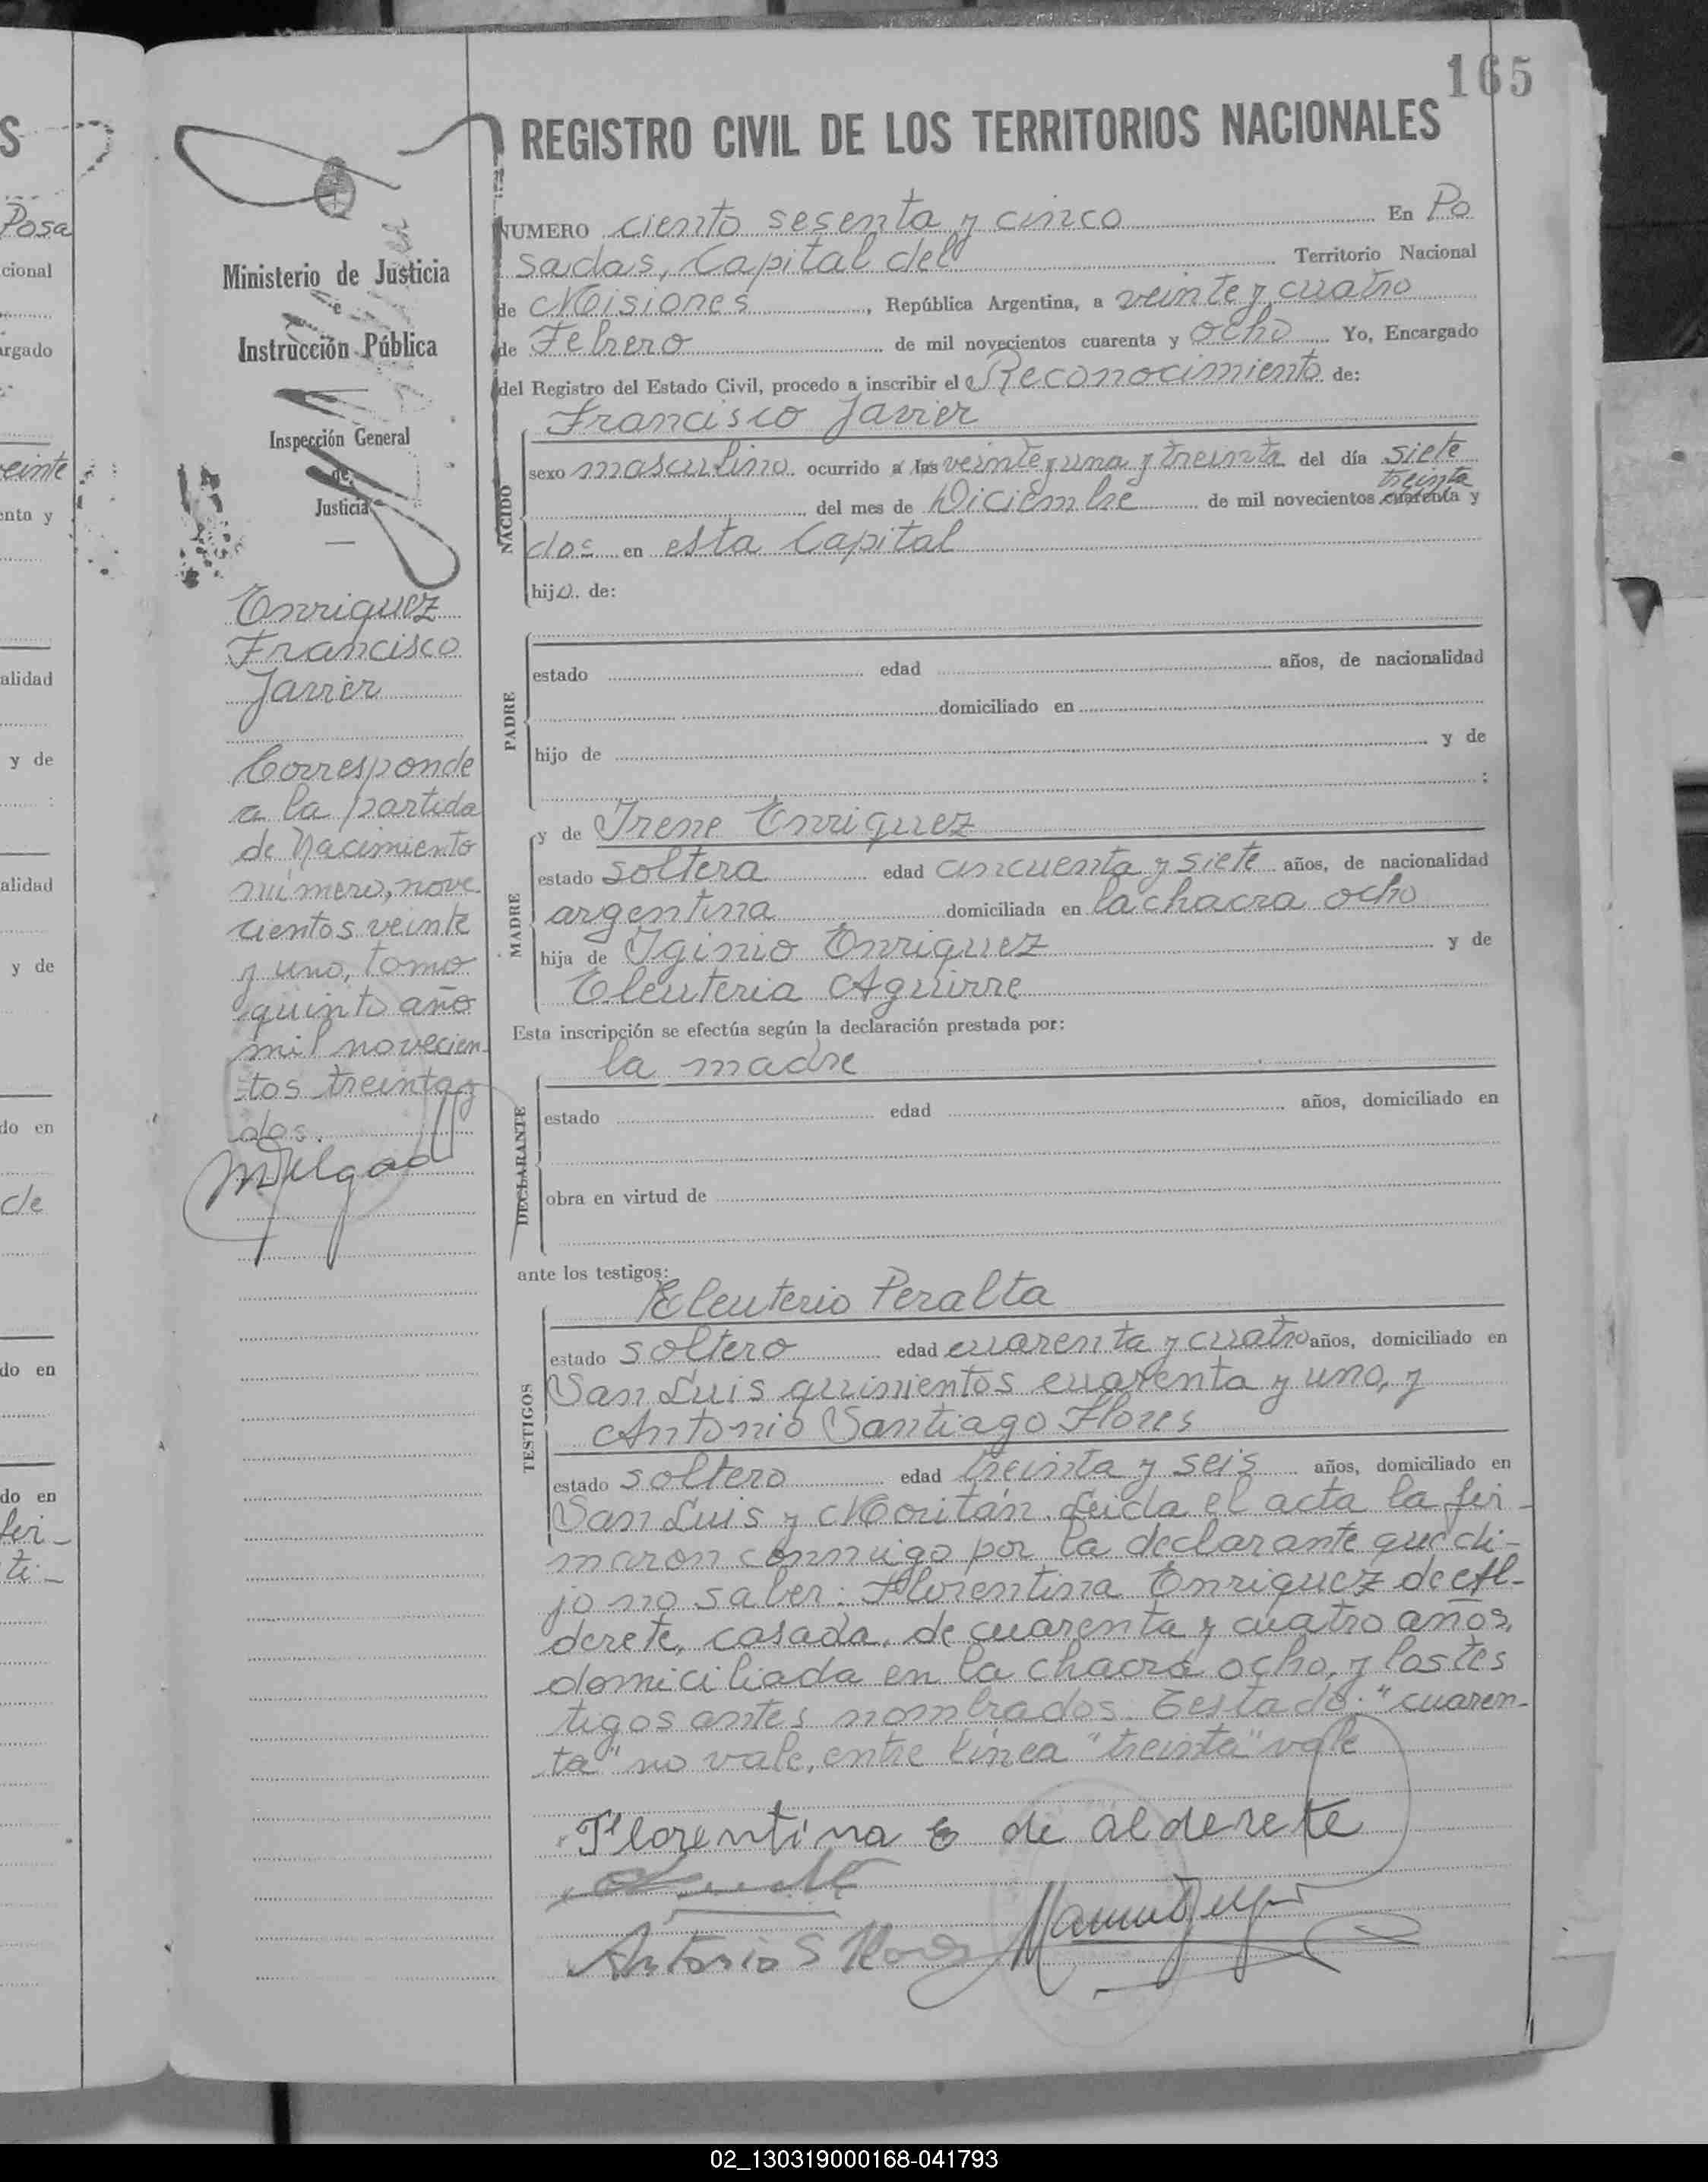 165
REGISTRO CIVIL DE LOS TERRITORIOS NACIONALES
NUMERO ciento sesenta y cinco En Po
sadas, Capital del Territorio Nacional
de Misiones, República Argentina, a veinte y cuatro
de Febrero de mil novecientos cuarenta y ocho Yo, Encargado
del Registro del Estado Civil, procedo a inscribir el Reconocimiento de:
Francisco Javier
NACIDO
sexo masculino ocurrido a las veinte y una y treinta del día siete
treinta
del mes de Diciembre de mil novecientos cuarenta y
dos en esta Capital
hijo de:
PADRE
estado edad años, de nacionalidad
domiciliado en
hijo de y de
:
MADRE
y de Irene Enriquez
estado soltera edad cincuenta y siete años, de nacionalidad
argentina domiciliada en la chacra ocho
hija de Iginio Enriquez y de
Eleuteria Aguirre
Esta inscripción se efectúa según la declaración prestada por:
la madre
DECLARANTE
estado edad años, domiciliado en
obra en virtud de
ante los testigos:
TESTIGOS
Eleuterio Peralta
estado soltero edad cuarenta y cuatro años, domiciliado en
San Luis quinientos cuarenta y uno, y
Antonio Santiago Flores
estado soltero edad treinta y seis años, domiciliado en
San Luis y Moritán. Leida el acta la fir-
maron conmigo por la declarante que di-
jo no saber: Florentina Enriquez de Al-
derete, casada, de cuarenta y cuatro años,
domiciliada en la chacra ocho, y los tes
tigos antes nombrados. Testado: "cuaren-
ta" no vale, entre linea "treinta" vale
Florentina E de alderete
Antonio S Flores
Ministerio de Justicia
e
Instrucción Pública
Inspección General
de
Justicia
Enriquez
Francisco
Javier
Corresponde
a la partida
de Nacimiento
número, nove
cientos veinte
y uno, tomo
quinto año
mil novecien-
tos treinta y
dos.
S
Posa
cional
argado
veinte
enta y
alidad
y de
:
alidad
y de
do en
de
do en
do en
fir-
ti-
02_130319000168-041793